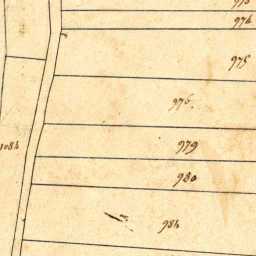 974
975
976.
979
980
984
1084